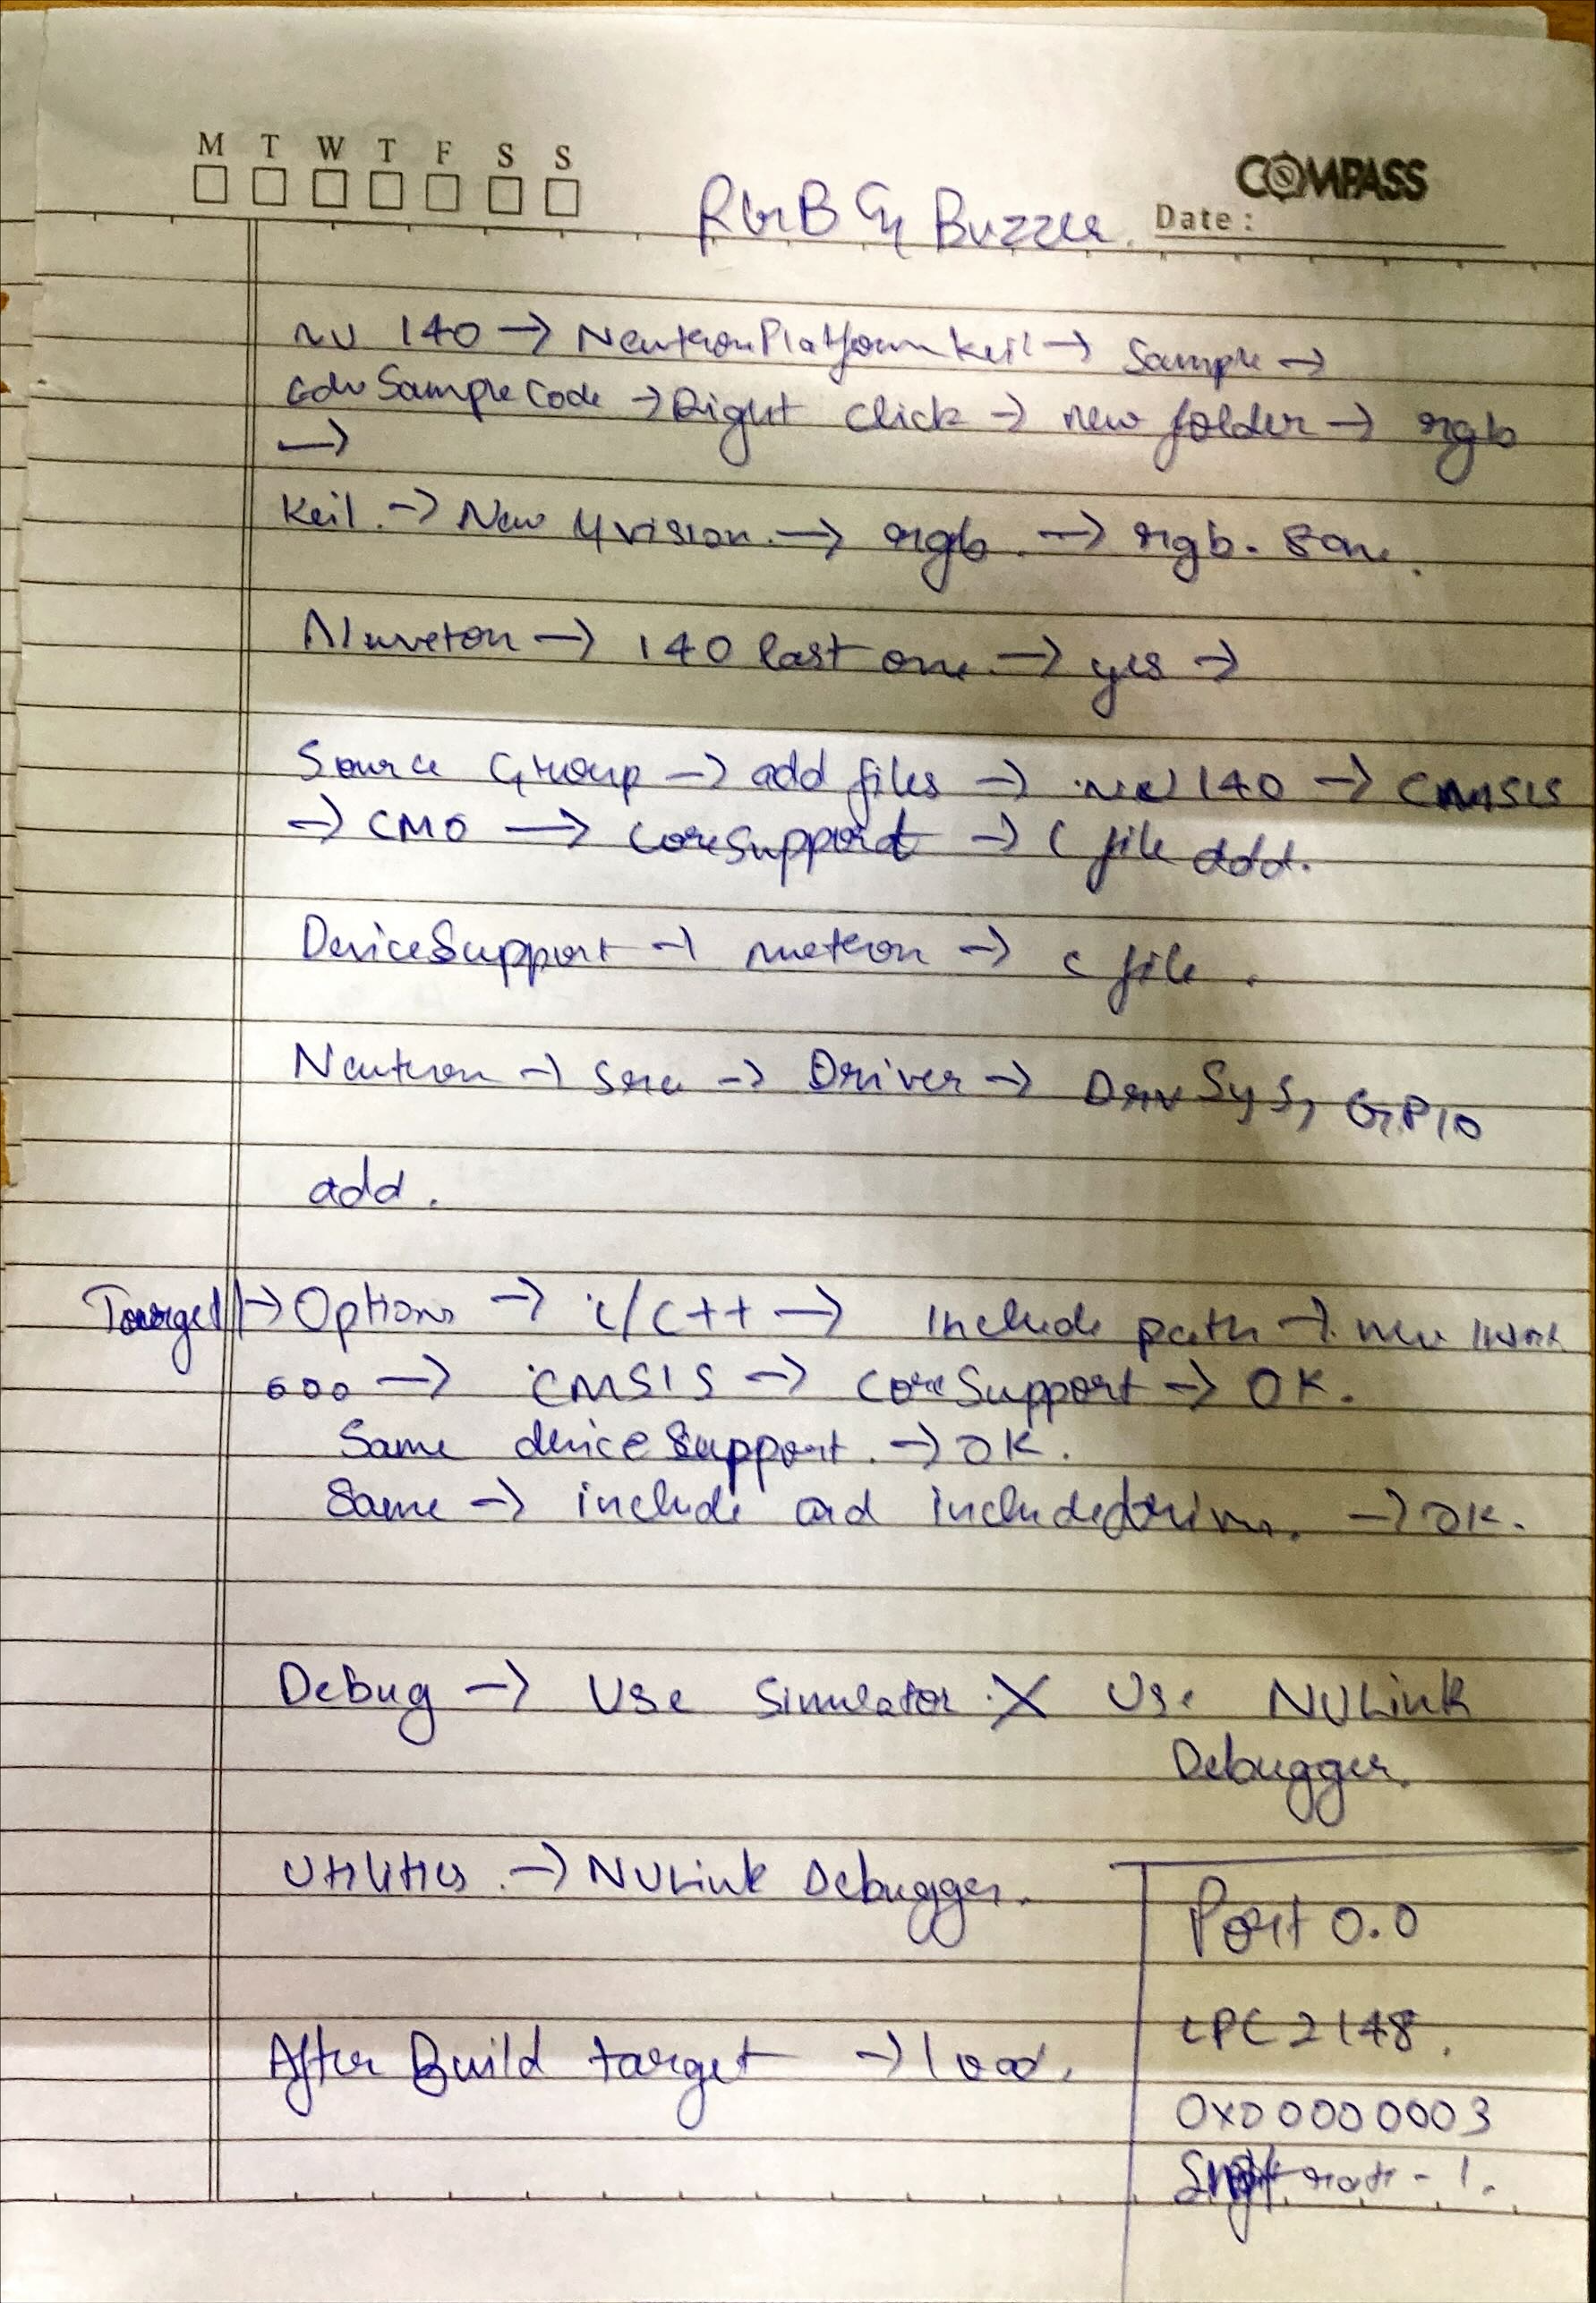 M T W T F S S
COMPASS
Date :
RGB & Buzzer.
NU 140 → NeutronPlatformKeil → Sample →
edu SampleCode → Right Click → new folder → rgb
→
Keil. → New 4vision. → rgb. → rgb. Save.
Nuvoton → 140 last one. → yes →
Source Group → add files → 140 → CMSIS
→ CM0 → CoreSupport → C file add.
DeviceSupport → → c file.
Neutron → Src → Driver → DrvSys, GPIO
add.
Target → Options → c/c++ → Include path → new insert
000 → CMSIS → CoreSupport → OK.
Same deviceSupport. → OK.
Same → include and include → OK.
Debug → Use Simulator X Use NULink
Debugger.
Utilities. → NULink Debugger.
After Build target → load.
Port 0.0
LPC2148.
0x00000003
- 1.